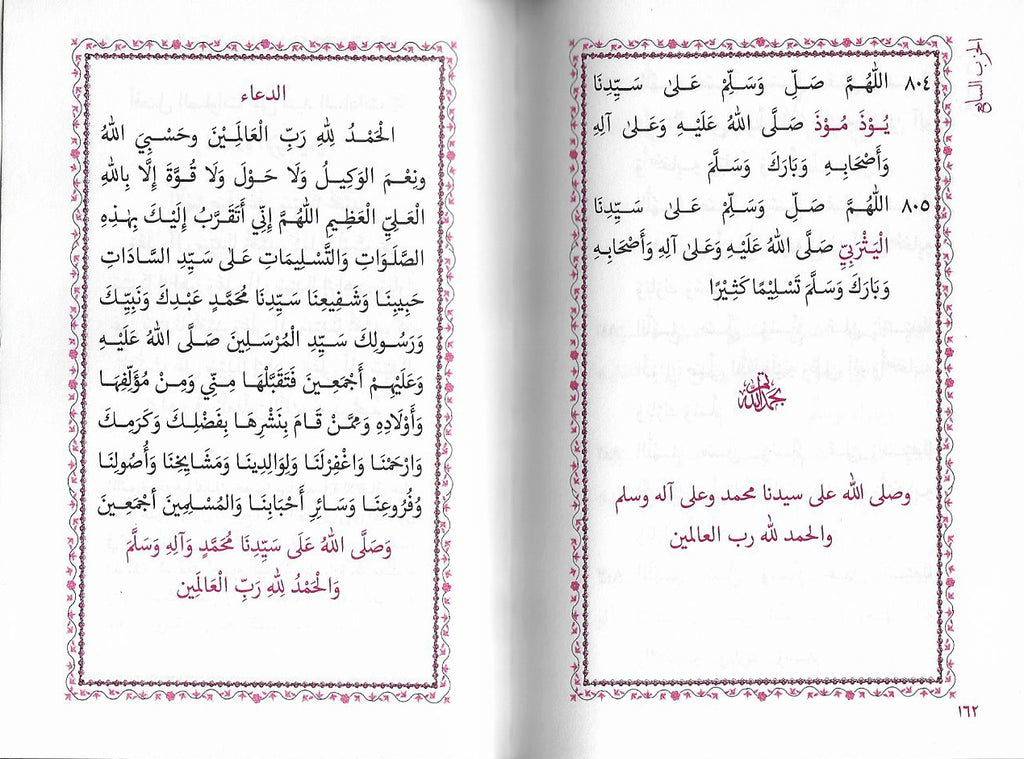 الحزب السابع
٨٠٤ اللَّهُمَّ صَلِّ وَسَلِّمْ عَلَىٰ سَيِّدِنَا
يُوْذَ مُوْذَ صَلَّى اللهُ عَلَيْهِ وَعَلَىٰ آلِهِ
وَأَصْحَابِهِ وَبَارَكَ وَسَلَّمَ
٨٠٥ اللَّهُمَّ صَلِّ وَسَلِّمْ عَلَىٰ سَيِّدِنَا
الْيَثْرِبِيِّ صَلَّى اللهُ عَلَيْهِ وَعَلَىٰ آلِهِ وَأَصْحَابِهِ
وَبَارَكَ وَسَلَّمَ تَسْلِيْمًا كَثِيْرًا
تم بحمد الله
وصلى الله على سيدنا محمد وعلى آله وسلم
والحمد لله رب العالمين
١٦٢
الدعاء
الْحَمْدُ لِلهِ رَبِّ الْعَالَمِيْنَ وحَسْبِيَ اللهُ
ونِعْمَ الوَكِيلُ وَلَا حَوْلَ وَلَا قُوَّةَ إِلَّا بِاللهِ
الْعَلِيِّ الْعَظِيمِ اللَّهُمَّ إِنِّي أَتَقَرَّبُ إِلَيْكَ بِهَذِهِ
الصَّلَوَاتِ وَالتَّسْلِيمَاتِ عَلَى سَيِّدِ السَّادَاتِ
حَبِيبِنَا وَشَفِيعِنَا سَيِّدِنَا مُحَمَّدٍ عَبْدِكَ وَنَبِيِّكَ
وَرَسُولِكَ سَيِّدِ الْمُرْسَلِينَ صَلَّى اللهُ عَلَيْهِ
وَعَلَيْهِمْ أَجْمَعِينَ فَتَقَبَّلْهَا مِنِّي وَمِنْ مُؤَلِّفِهَا
وَأَوْلَادِهِ وَمِمَّنْ قَامَ بِنَشْرِهَا بِفَضْلِكَ وَكَرَمِكَ
وَارْحَمْنَا وَاغْفِرْلَنَا وَلِوَالِدِينَا وَمَشَايِخِنَا وَأُصُولِنَا
وَفُرُوعِنَا وَسَائِرِ أَحْبَابِنَا وَالمُسْلِمِينَ أجْمَعِينَ
وَصَلَّى اللهُ عَلَى سَيِّدِنَا مُحَمَّدٍ وَآلِهِ وَسَلَّمَ
وَالْحَمْدُ لِلهِ رَبِّ الْعَالَمِين